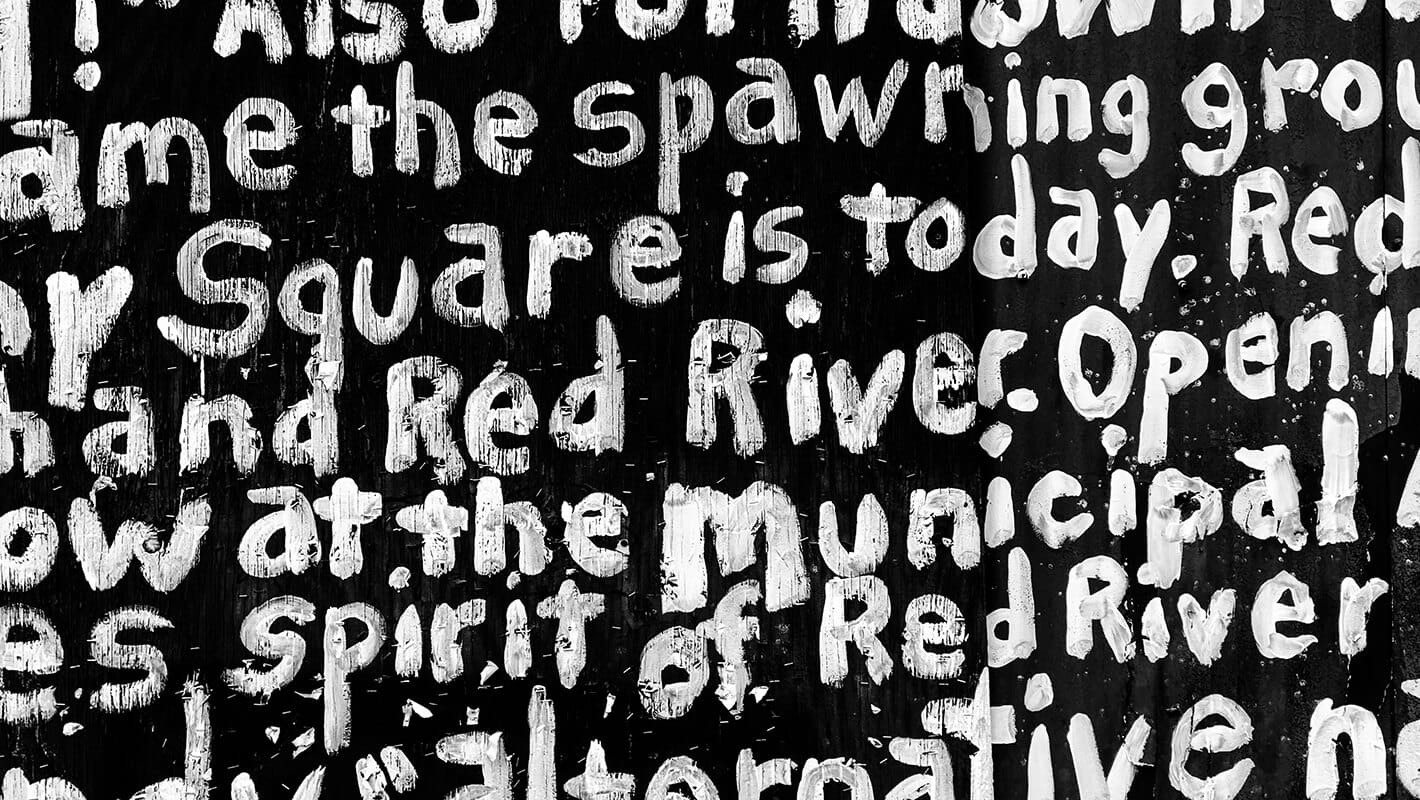 Also for
ame the spawning grou
Square is today. Red
and Red River. Openi
ow at the Municipal
es spirit of Red River
alternative